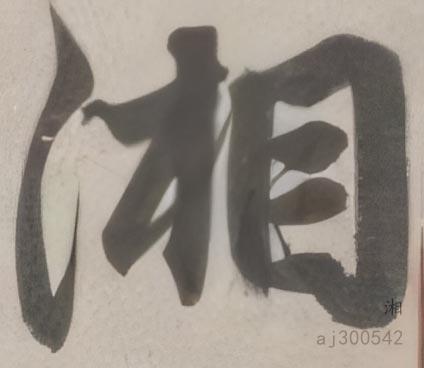 湘
湘
aj300542